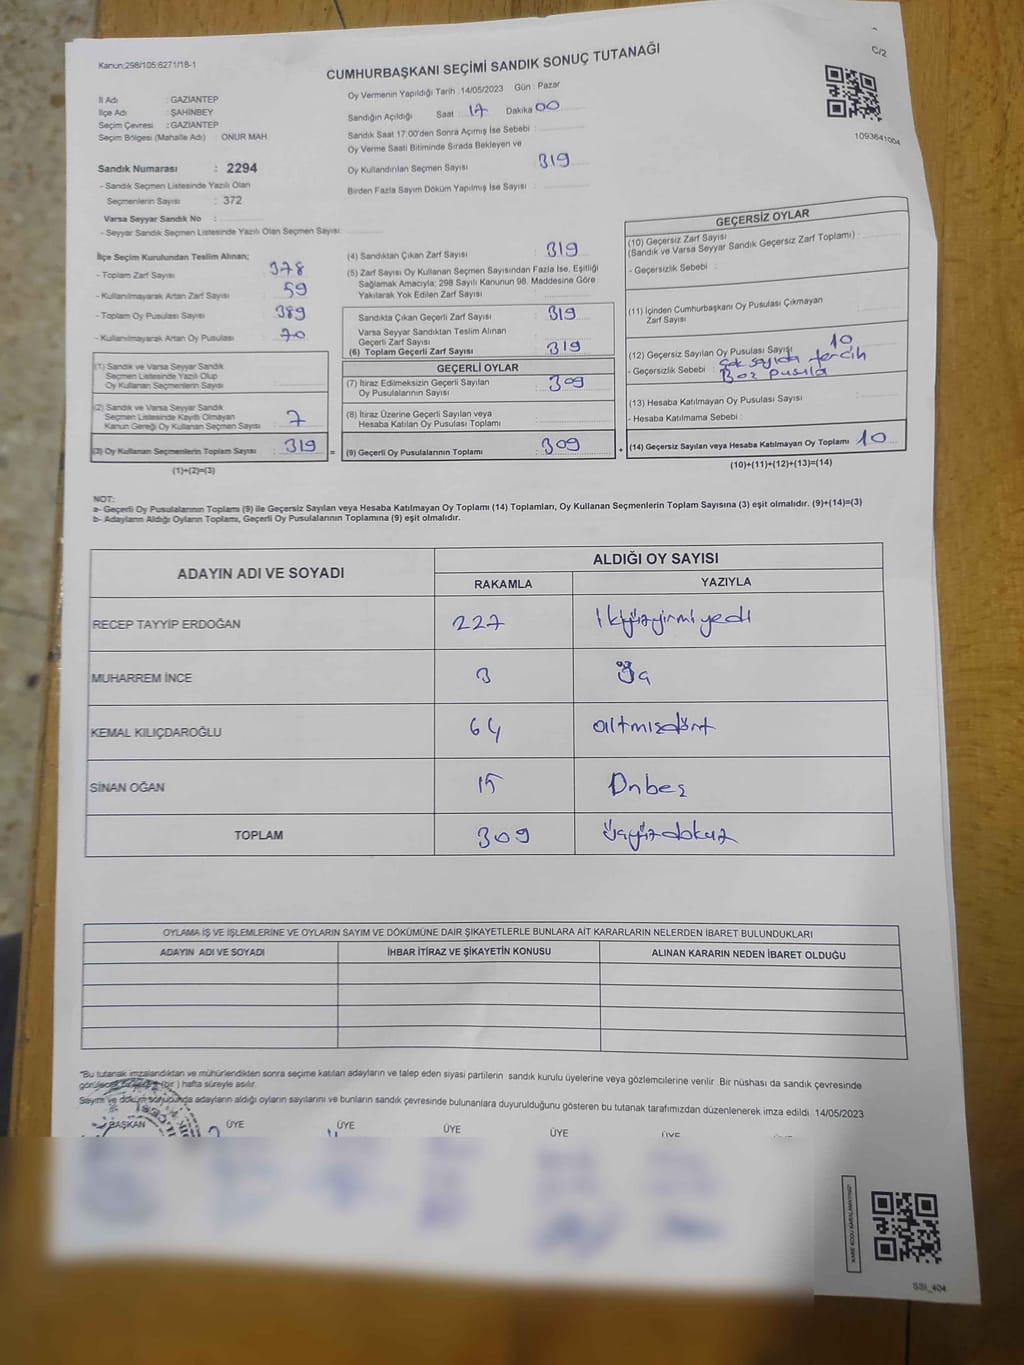 Kanun:298/105;6271/18-1
CUMHURBAŞKANI SEÇİMİ SANDIK SONUÇ TUTANAĞI
C/2
1093641004
İl Adı : GAZİANTEP
İlçe Adı : ŞAHİNBEY
Seçim Çevresi : GAZİANTEP
Seçim Bölgesi (Mahalle Adı) : ONUR MAH.
Sandık Numarası : 2294
- Sandık Seçmen Listesinde Yazılı Olan
Seçmenlerin Sayısı : 372
Varsa Seyyar Sandık No :
- Seyyar Sandık Seçmen Listesinde Yazılı Olan Seçmen Sayısı:
Oy Vermenin Yapıldığı Tarih :14/05/2023 Gün : Pazar
Sandığın Açıldığı Saat : 17 Dakika 00
Sandık Saat 17:00'den Sonra Açımış İse Sebebi :
Oy Verme Saati Bitiminde Sırada Bekleyen ve
Oy Kullandırılan Seçmen Sayısı : 319
Birden Fazla Sayım Döküm Yapılmış İse Sayısı :
İlçe Seçim Kurulundan Teslim Alınan;
- Toplam Zarf Sayısı : 378
- Kullanılmayarak Artan Zarf Sayısı : 59
- Toplam Oy Pusulası Sayısı : 389
- Kullanılmayarak Artan Oy Pusulası : 70
(1) Sandık ve Varsa Seyyar Sandık
Seçmen Listesinde Yazılı Olup
Oy Kullanan Seçmenlerin Sayısı :
(2) Sandık ve Varsa Seyyar Sandık
Seçmen Listesinde Kaydı Olmayan
Kanun Gereği Oy Kullanan Seçmen Sayısı : 7
(3) Oy Kullanan Seçmenlerin Toplam Sayısı : 319
(1)+(2)=(3)
(4) Sandıktan Çıkan Zarf Sayısı : 319
(5) Zarf Sayısı Oy Kullanan Seçmen Sayısından Fazla İse, Eşitliği
Sağlamak Amacıyla; 298 Sayılı Kanunun 98. Maddesine Göre
Yakılarak Yok Edilen Zarf Sayısı :
Sandıkta Çıkan Geçerli Zarf Sayısı : 319
Varsa Seyyar Sandıktan Teslim Alınan
Geçerli Zarf Sayısı :
(6) Toplam Geçerli Zarf Sayısı : 319
GEÇERLİ OYLAR
(7) İtiraz Edilmeksizin Geçerli Sayılan
Oy Pusulalarının Sayısı : 309
(8) İtiraz Üzerine Geçerli Sayılan veya
Hesaba Katılan Oy Pusulası Toplamı :
= (9) Geçerli Oy Pusulalarının Toplamı : 309 +
GEÇERSİZ OYLAR
(10) Geçersiz Zarf Sayısı
(Sandık ve Varsa Seyyar Sandık Geçersiz Zarf Toplamı) :
- Geçersizlik Sebebi :
(11) İçinden Cumhurbaşkanı Oy Pusulası Çıkmayan
Zarf Sayısı :
(12) Geçersiz Sayılan Oy Pusulası Sayısı : 10
- Geçersizlik Sebebi : çok sayıda tercih
Boş pusula
(13) Hesaba Katılmayan Oy Pusulası Sayısı :
- Hesaba Katılmama Sebebi :
(14) Geçersiz Sayılan veya Hesaba Katılmayan Oy Toplamı 10
(10)+(11)+(12)+(13)=(14)
NOT:
a- Geçerli Oy Pusulalarının Toplamı (9) ile Geçersiz Sayılan veya Hesaba Katılmayan Oy Toplamı (14) Toplamları, Oy Kullanan Seçmenlerin Toplam Sayısına (3) eşit olmalıdır. (9)+(14)=(3)
b- Adayların Aldığı Oyların Toplamı, Geçerli Oy Pusulalarının Toplamına (9) eşit olmalıdır.
ADAYIN ADI VE SOYADI
ALDIĞI OY SAYISI
RAKAMLA YAZIYLA
RECEP TAYYİP ERDOĞAN 227 ikiyüzyirmiyedi
MUHARREM İNCE 3 üç
KEMAL KILIÇDAROĞLU 64 altmışdört
SİNAN OĞAN 15 Onbeş
TOPLAM 309 üçyüzdokuz
OYLAMA İŞ VE İŞLEMLERİNE VE OYLARIN SAYIM VE DÖKÜMÜNE DAİR ŞİKAYETLERLE BUNLARA AİT KARARLARIN NELERDEN İBARET BULUNDUKLARI
ADAYIN ADI VE SOYADI İHBAR İTİRAZ VE ŞİKAYETİN KONUSU ALINAN KARARIN NEDEN İBARET OLDUĞU
"Bu tutanak imzalandıktan ve mühürlendikten sonra seçime katılan adayların ve talep eden siyasi partilerin sandık kurulu üyelerine veya gözlemcilerine verilir. Bir nüshası da sandık çevresinde
(bir) hafta süreyle asılır.
Sayım ve döküm sonucunda adayların aldığı oyların sayılarını ve bunların sandık çevresinde bulunanlara duyurulduğunu gösteren bu tutanak tarafımızdan düzenlenerek imza edildi. 14/05/2023
BAŞKAN ÜYE ÜYE ÜYE ÜYE ÜYE
SSI_404